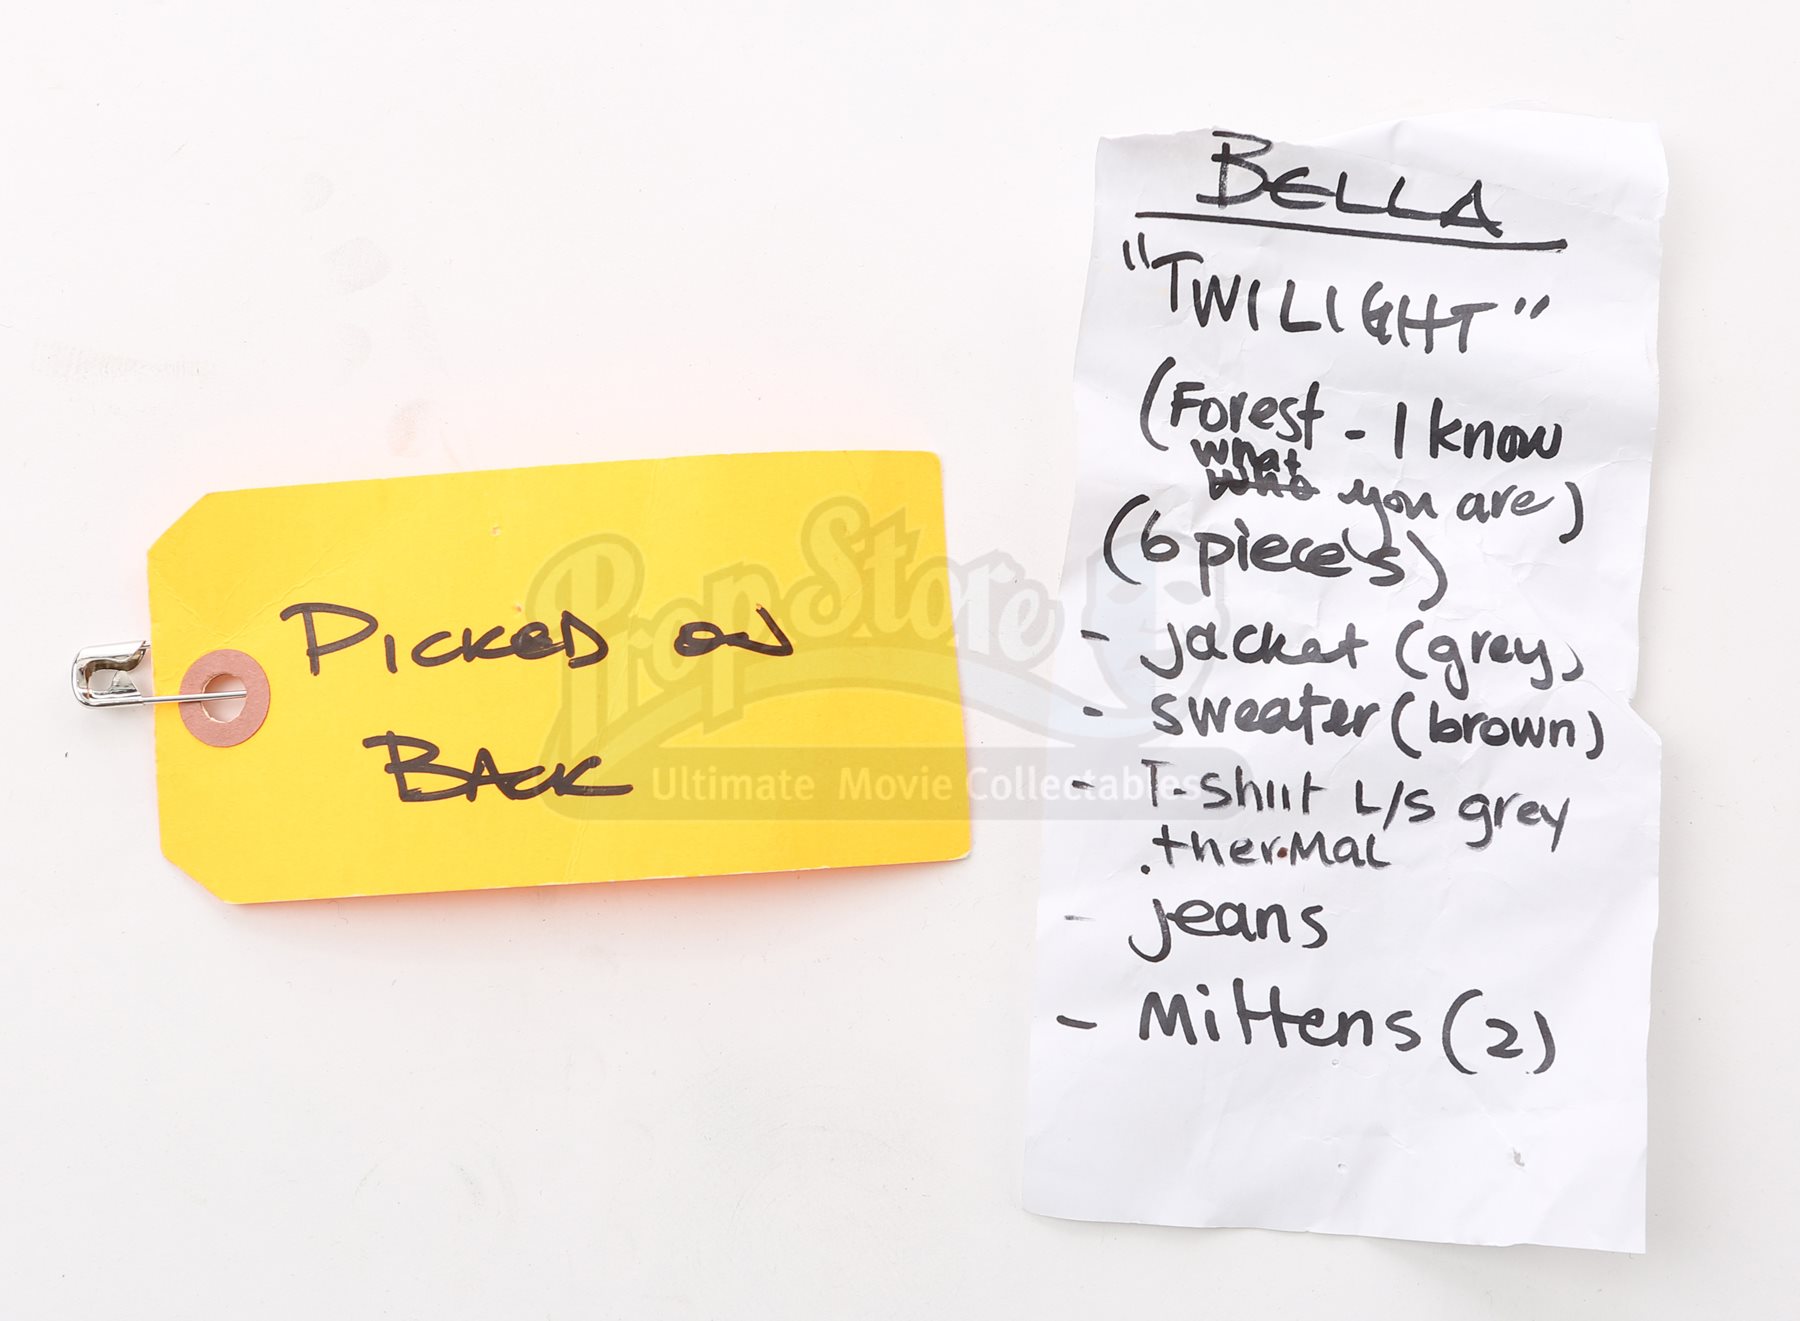 PICKED ON
BACK
BELLA
"TWILIGHT"
(Forest - I know
what
who you are)
(6 pieces)
- jacket (grey)
- sweater (brown)
- T-shirt L/S grey
thermal
- jeans
- Mittens (2)
PropStore
Ultimate Movie Collectables